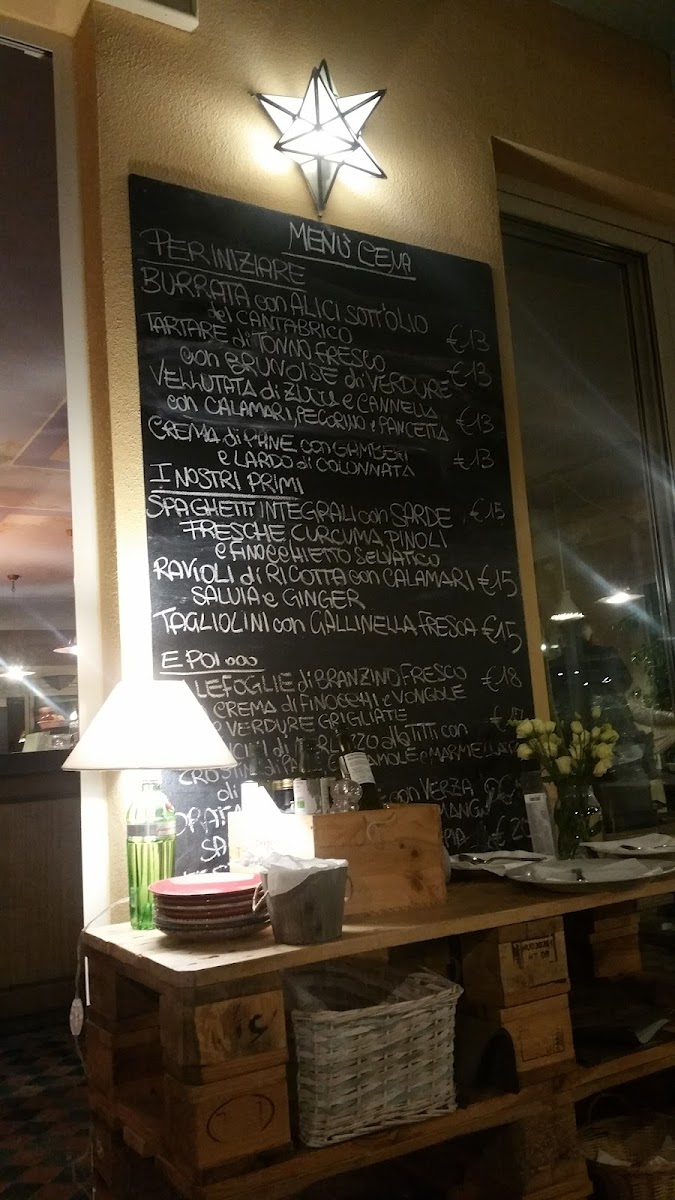 MENÙ CENA
PER INIZIARE
BURRATA con ALICI SOTT'OLIO
del CANTABRICO €13
TARTARE di TONNO FRESCO
con BRUNOISE di VERDURE €13
VELLUTATA di ZUCCA e CANNELLA
con CALAMARI, PECORINO e PANCETTA €13
CREMA di PANE con GAMBERI
e LARDO di COLONNATA €13
I NOSTRI PRIMI
SPAGHETTI INTEGRALI con SARDE €15
FRESCHE CURCUMA PINOLI
e FINOCCHIETTO SELVATICO
RAVIOLI di RICOTTA con CALAMARI €15
SALVIA e GINGER
TAGLIOLINI con GALLINELLA FRESCA €15
E POI ...
LEFOGLIE di BRANZINO FRESCO €18
CREMA di FINOCCHI e VONGOLE
VERDURE GRIGLIATE
con
CROSTINI di
e MARMELLATA
di
con VERZA
ORATA
€20
SA